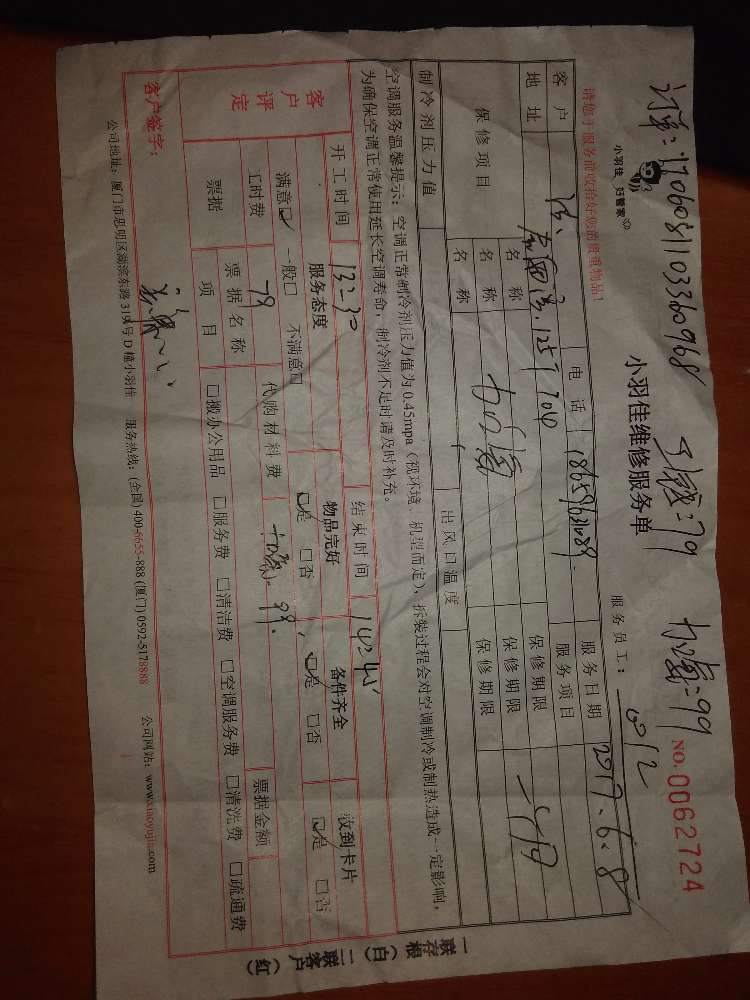 订单:1706081103360968 工费:79 加氟:99
小羽佳 好管家
NO.0062724
小羽佳维修服务单
服务员工: 012
请您于服务前收拾好您的贵重物品!
客户 电话 服务日期 2017.6.8
地址 服务项目
保修项目 名称 保修期限
名称 加氟 保修期限
名称 保修期限
制冷剂压力值 出风口温度
空调服务温馨提示:空调正常制冷剂压力值为0.45mpa(视环境、机型而定),拆装过程会对空调制冷或制热造成一定影响,
为确保空调正常使用延长空调寿命,制冷剂不足时请及时补充。
开工时间 13:30 结束时间 14:45
客户评定 服务态度 物品完好 备件齐全 收到卡片
满意☑ 一般□ 不满意□ ☑是 □否 ☑是 □否 ☑是 □否
工时费 79 代购材料费 加氟:99.
票据 票据名称 票据金额
项目 □搬办公用品 □服务费 □清洁费 □空调服务费 □清洗费 □疏通费
客户签字:
公司地址:厦门市思明区湖滨东路319号D幢小羽佳 服务热线:(全国)400-6655-888 (厦门)0592-5178888 公司网站:www.xiaoyujia.com
一联存根(白) 二联客户(红)